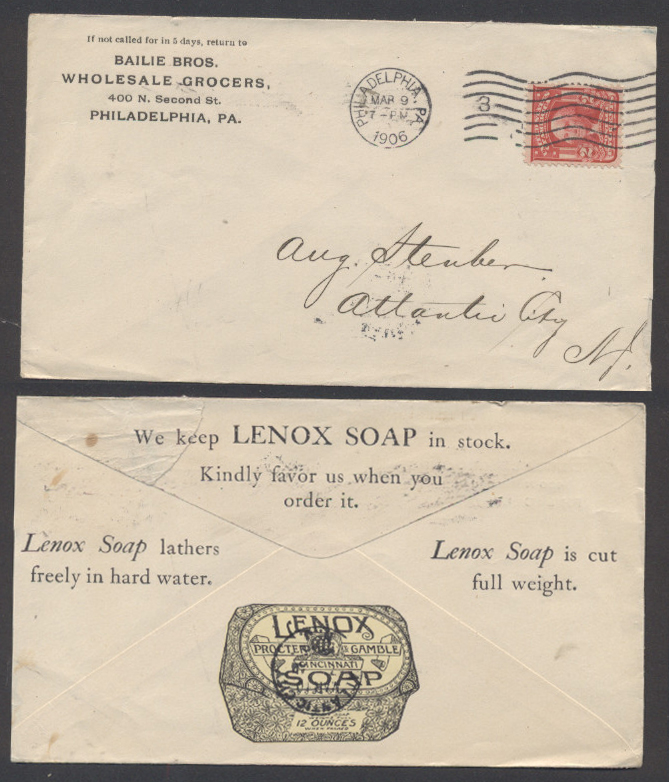 If not called for in 5 days, return to
BAILIE BROS.
WHOLESALE GROCERS,
400 N. Second St.
PHILADELPHIA, PA.
PHILADELPHIA, PA.
MAR 9
7 - PM
1906
3
Aug. Steuber
Atlantic City
N.J.
We keep LENOX SOAP in stock.
Kindly favor us when you
order it.
Lenox Soap lathers
freely in hard water.
Lenox Soap is cut
full weight.
LENOX
PROCTER & GAMBLE
CINCINNATI
SOAP
12 OUNCES